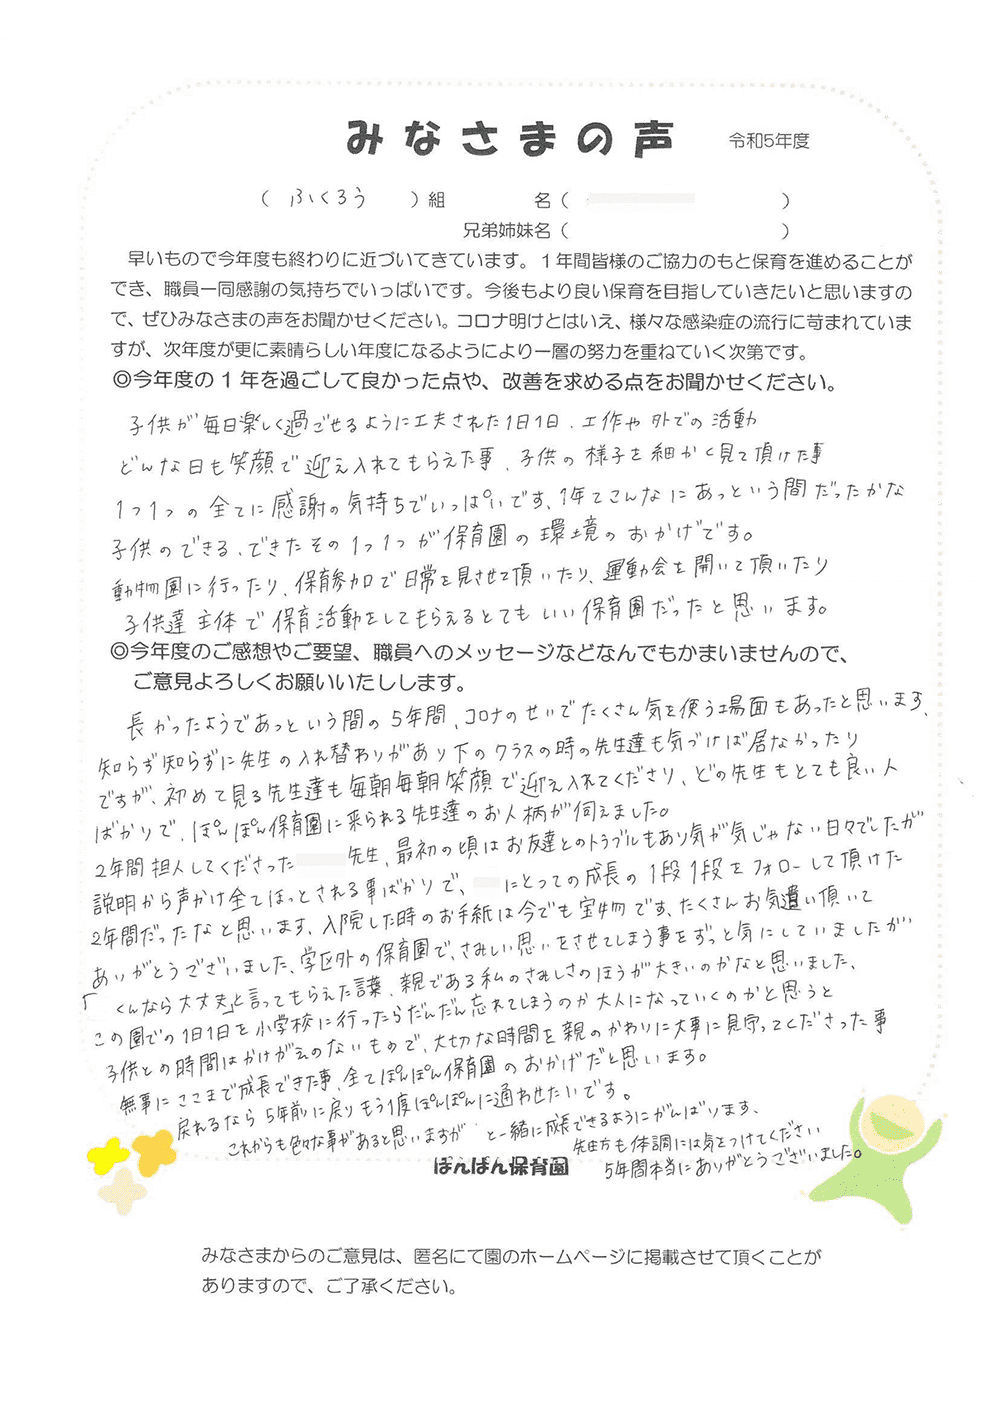 みなさまの声 令和5年度
（ ふくろう ）組 名（ ）
兄弟姉妹名（ ）
早いもので今年度も終わりに近づいてきています。１年間皆様のご協力のもと保育を進めることが
でき、職員一同感謝の気持ちでいっぱいです。今後もより良い保育を目指していきたいと思いますの
で、ぜひみなさまの声をお聞かせください。コロナ明けとはいえ、様々な感染症の流行に苛まれていま
すが、次年度が更に素晴らしい年度になるようにより一層の努力を重ねていく次第です。
◎今年度の１年を過ごして良かった点や、改善を求める点をお聞かせください。
子供が毎日楽しく過ごせるように工夫された1日1日、工作や外での活動
どんな日も笑顔で迎え入れてもらえた事、子供の様子を細かく見て頂けた事
1つ1つの全てに感謝の気持ちでいっぱいです、1年てこんなにあっという間だったかな
子供のできる、できたその1つ1つが保育園の環境のおかげです。
動物園に行ったり、保育参加で日常を見させて頂いたり、運動会を開いて頂いたり
子供達主体で保育活動をしてもらえるとてもいい保育園だったと思います。
◎今年度のご感想やご要望、職員へのメッセージなどなんでもかまいませんので、
ご意見よろしくお願いいたしします。
長かったようであっという間の5年間、コロナのせいでたくさん気を使う場面もあったと思います、
知らず知らずに先生の入れ替わりがあり下のクラスの時の先生達も気づけば居なかったり
ですが、初めて見る先生達も毎朝毎朝笑顔で迎え入れてくださり、どの先生もとても良い人
ばかりで、ぽんぽん保育園に来られる先生達のお人柄が伺えました。
2年間担人してくださった 先生、最初の頃はお友達とのトラブルもあり気が気じゃない日々でしたが
説明から声かけ全てほっとされる事ばかりで、 にとっての成長の1段1段をフォローして頂けた
2年間だったなと思います、入院した時のお手紙は今でも宝物です、たくさんお気遣い頂いて
ありがとうございました、学区外の保育園で、さみしい思いをさせてしまう事をずっと気にしていましたが
「 くんなら大丈夫」と言ってもらえた言葉、親である私のさみしさのほうが大きいのかなと思いました、
この園での1日1日を小学校に行ったらだんだん忘れてしまうのか大人になっていくのかと思うと
子供との時間はかけがえのないもので、大切な時間を親のかわりに大事に見守ってくださった事
無事にここまで成長できた事、全てぽんぽん保育園のおかげだと思います。
戻れるなら5年前に戻りもう1度ぽんぽんに通わせたいです。
これからも色々な事があると思いますが と一緒に成長できるようにがんばります、
先生方も体調には気をつけてください
5年間本当にありがとうございました。
ぽんぽん保育園
みなさまからのご意見は、匿名にて園のホームページに掲載させて頂くことが
ありますので、ご了承ください。